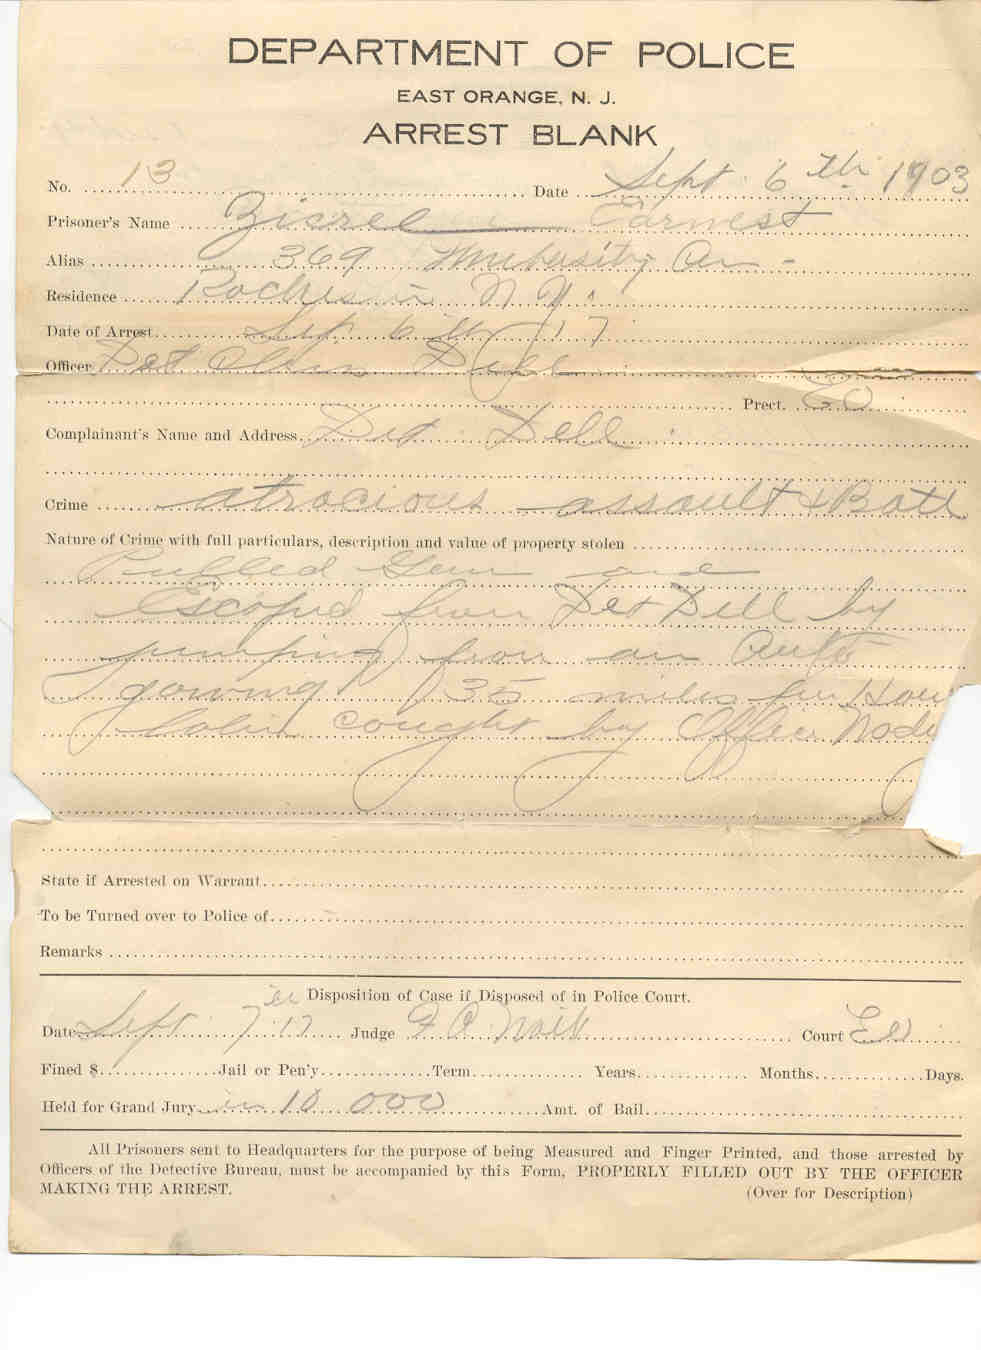 DEPARTMENT OF POLICE
EAST ORANGE, N. J.
ARREST BLANK
No. 13 Date Sept. 6th 1903
Prisoner's Name Earnest
Alias 369 University Av -
Residence Rochester N. Y.
Date of Arrest Sept 6th 17
Officer Det Dell
Prect. EO
Complainant's Name and Address Det Dell
Crime atrocious assault & Batt
Nature of Crime with full particulars, description and value of property stolen
Pulled Gun and
Escaped from Det Dell by
jumping from an Auto
gowing 35 miles per Hour
later cought by Officer
State if Arrested on Warrant
To be Turned over to Police of
Remarks
Disposition of Case if Disposed of in Police Court.
Date Sept 7th 17 Judge Court EO
Fined $ Jail or Pen'y Term Years Months Days.
Held for Grand Jury in 10 000 Amt. of Bail
All Prisoners sent to Headquarters for the purpose of being Measured and Finger Printed, and those arrested by
Officers of the Detective Bureau, must be accompanied by this Form, PROPERLY FILLED OUT BY THE OFFICER
MAKING THE ARREST.
(Over for Description)